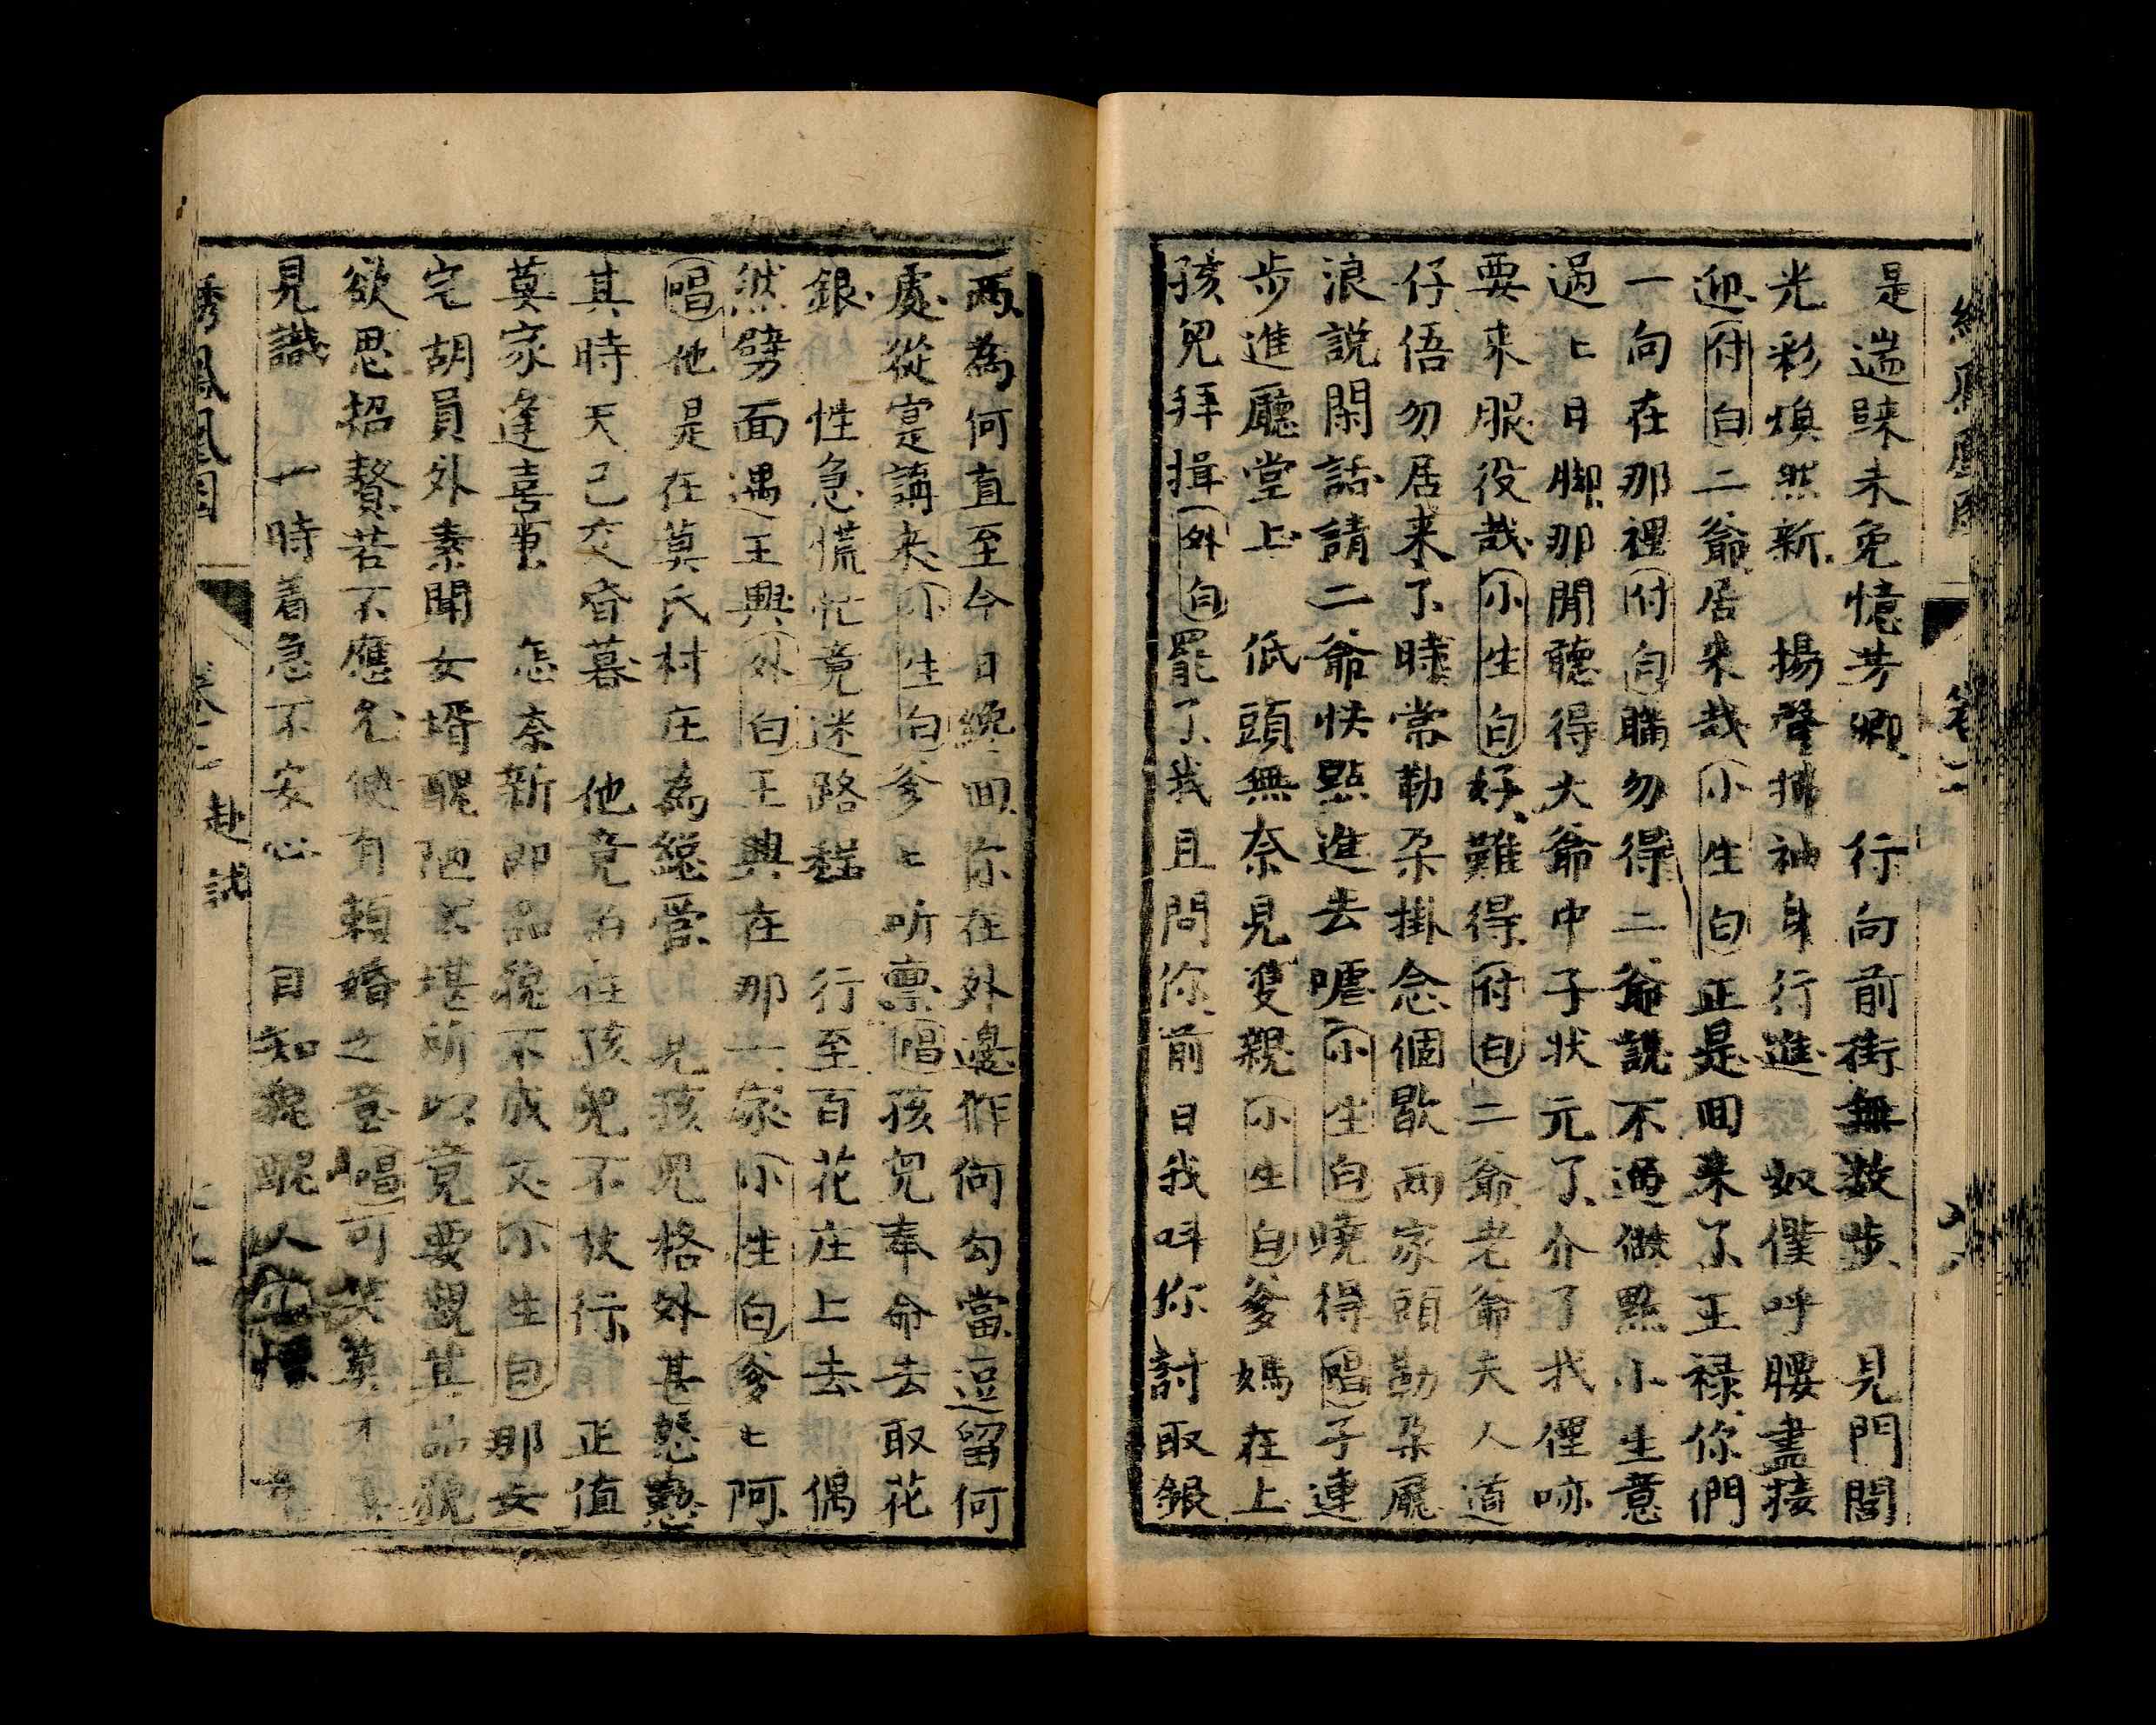 是遄睞未免憶芳卿　行向前街無数步　見門閭
光彩煥然新　揚聲拂袖身行進　奴僕呼腰盡接
迎付白二爺居来哉小生白正是回来了王禄你們
一向在那裡付白瞞勿得二爺說不過做點小生意
過七日脚那閒聽得大爺中子状元了介了我俚吥
要来服役哉小生白好難得付白二爺老爺夫人道
仔俉勿居来了時常勒朶掛念個歇両家頭勒朶廳
浪說閑話請二爺快點進去嚡小生白曉得唱子連
步進廳堂上　低頭無奈見雙親小生白爹媽在上
孩兒拜揖外白罷了我且問你前日我呌你討取銀
両為何直至今日纔回你在外邊作何勾當逗留何
處從寔講来小生白爹七听禀唱孩兒奉命去取花
銀　性急慌忙竟迷路程　行至百花庄上去　偶
然劈面遇王興外白王興在那一家小生白爹七阿
唱他是在莫氏村庄為總管　見孩兒格外甚慇懃
其時天已交昏暮　他竟留住孩兒不放行　正值
莫家逢喜事　怎奈新郎品貌不成文小生白那女
宅胡員外素聞女壻醜陋不堪所以竟要覌其品貌
欲思招贅若不應允便有頼婚之意唱可笑莫
見識　一時着急不安心　自知貌醜人
綉鳳凰図　卷十二　赴試